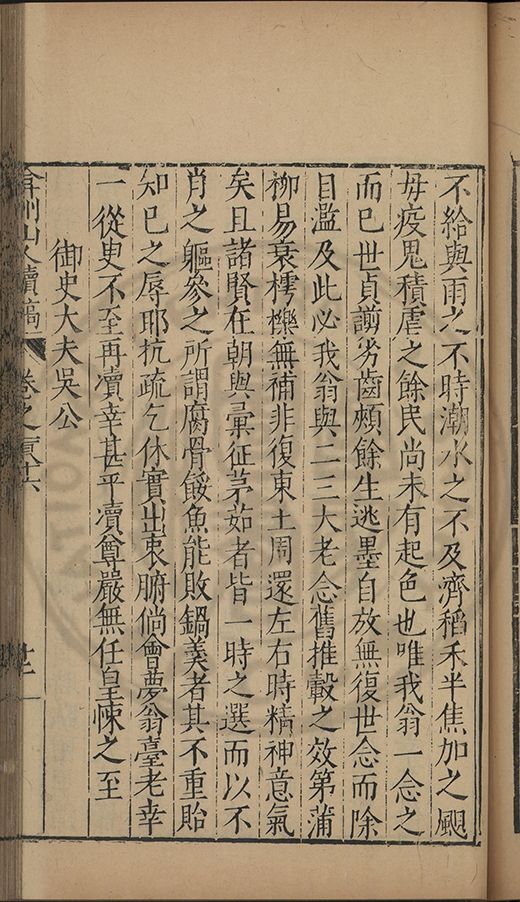 不給與雨之不時潮水之不及濟稻禾半焦加之颶
毋疫鬼積虐之餘民尚未有起色也唯我翁一念之
而已世貞謭劣齒頰餘生逃墨自放無復世念而除
目濫及此必我翁與二三大老念舊推轂之效第蒲
柳易衰樗櫟無補非復東土周還左右時精神意氣
矣且諸賢在朝與彙征茅茹者皆一時之選而以不
肖之軀參之所謂腐骨餒魚能敗鍋羹者其不重貽
知巳之辱耶抗疏乞休實出衷腑倘會夢翁臺老幸
一從臾不至再瀆幸甚平瀆尊嚴無任皇悚之至
御史大夫吳公
弇州山人續稿
卷之